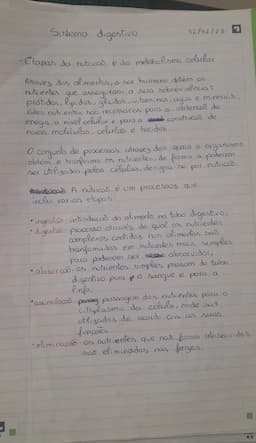 Sistema digestivo 12/12/23
- Etapas da nutrição e do metabolismo celular
Através dos alimentos, o ser humano obtém os
nutrientes que asseguram a sua sobrevivência:
prótidos, lípidos, glúcidos, vitaminas, água e minerais.
Estes nutrientes são necessários para a obtenção de
energia a nível celular e para a construção de
novas moléculas, células e tecidos.
O conjunto de processos através dos quais o organismo
obtém e transforma os nutrientes, de forma a poderem
ser utilizados pelas células, designa-se por nutrição.
A nutrição é um processo que
inclui várias etapas:
• ingestão: introdução do alimento no tubo digestivo;
• digestão: processo através do qual os nutrientes
complexos contidos nos alimentos são
transformados em nutrientes mais simples
para poderem ser absorvidos;
• absorção: os nutrientes simples passam do tubo
digestivo para o sangue e para a
linfa.
• assimilação: passagem dos nutrientes para o
citoplasma da célula, onde são
utilizados de acordo com as suas
funções.
• eliminação: os nutrientes que não foram absorvidos
são eliminados nas fezes.